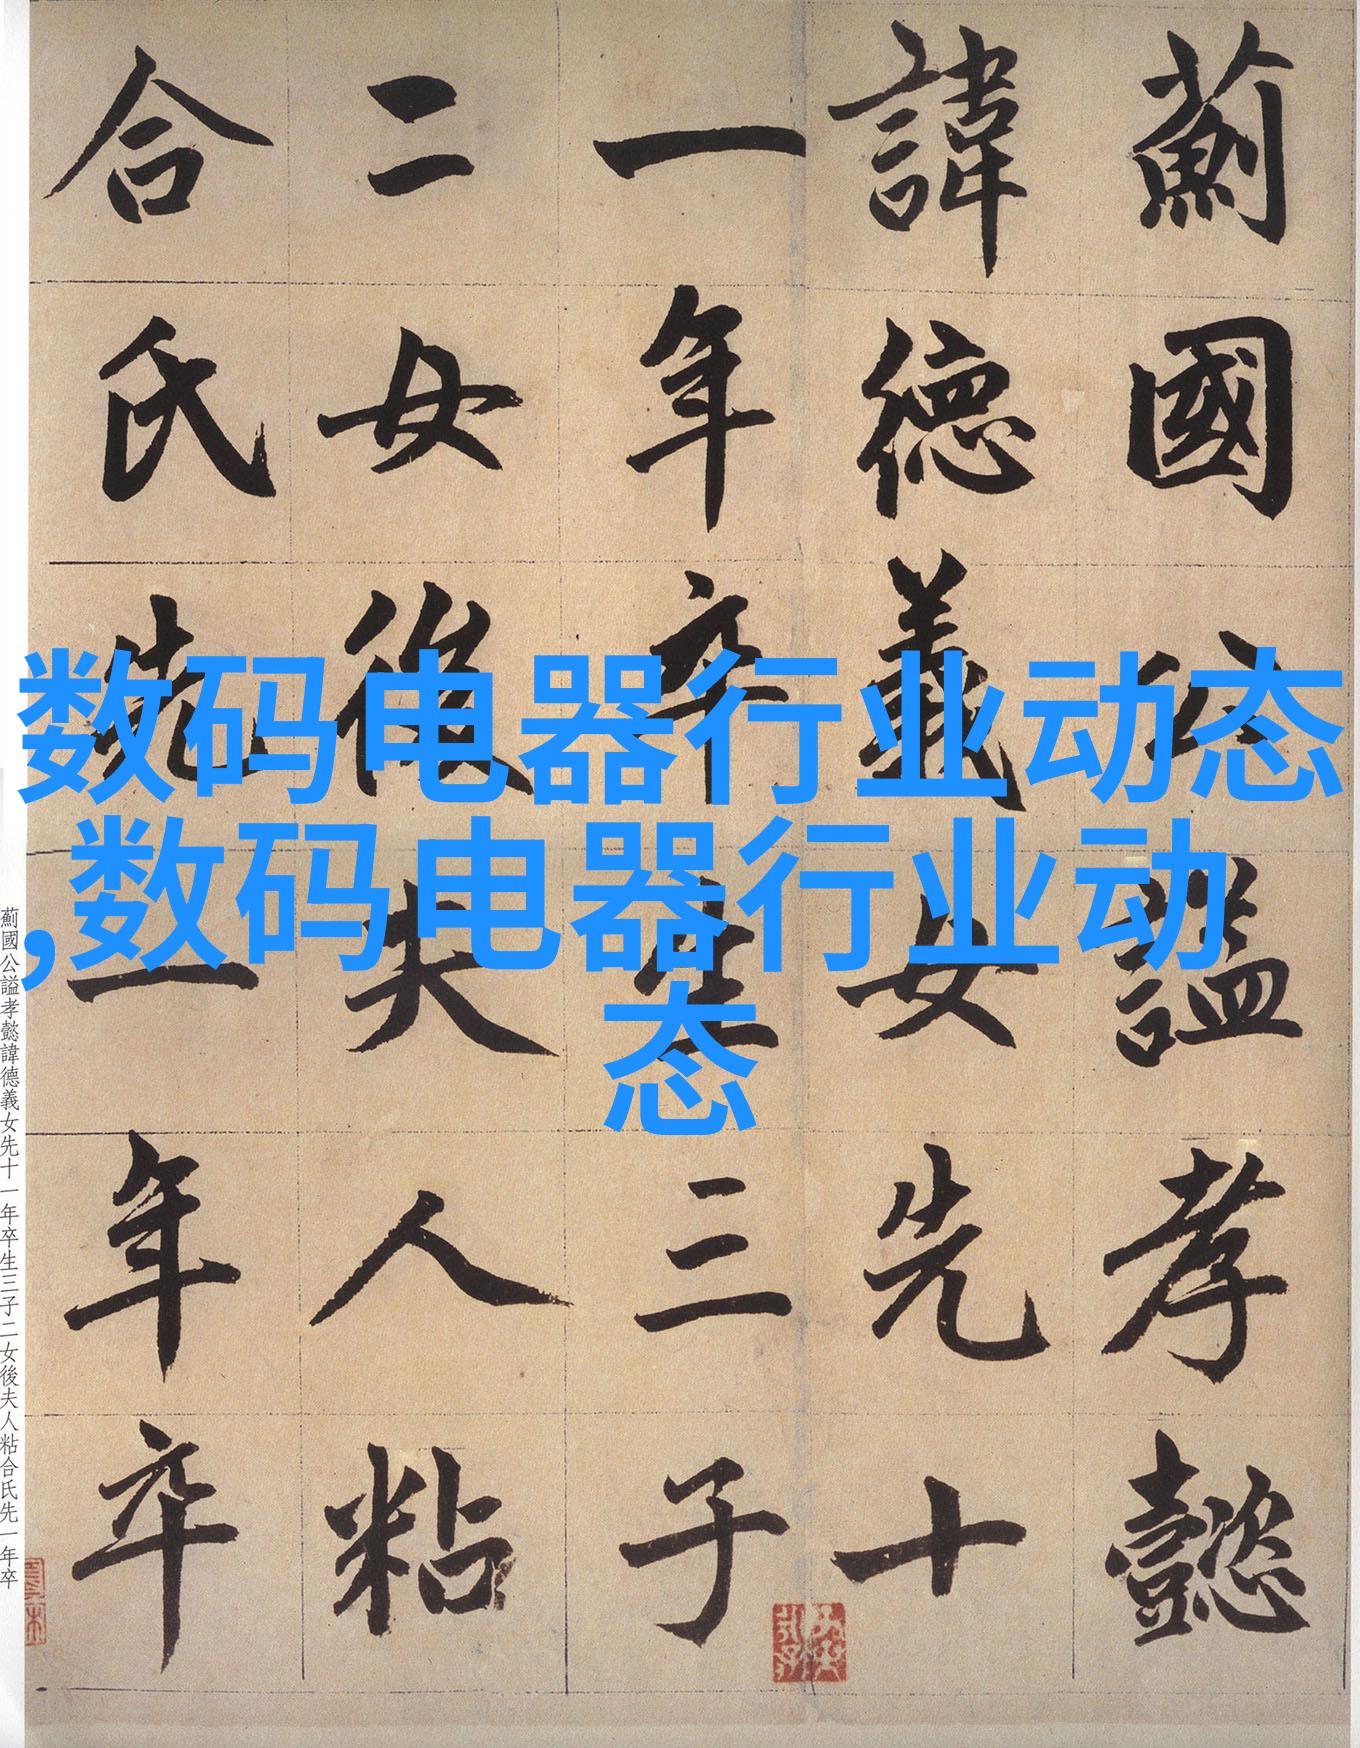 薊國公謚孝懿
諱德義女先十
一年卒生三子
二女後夫人粘
合氏先一年卒
数码电器行业动态
,数码电器行业动
态
薊國公謚孝懿諱德義女先十一年卒生三子二女後夫人粘合氏先一年卒